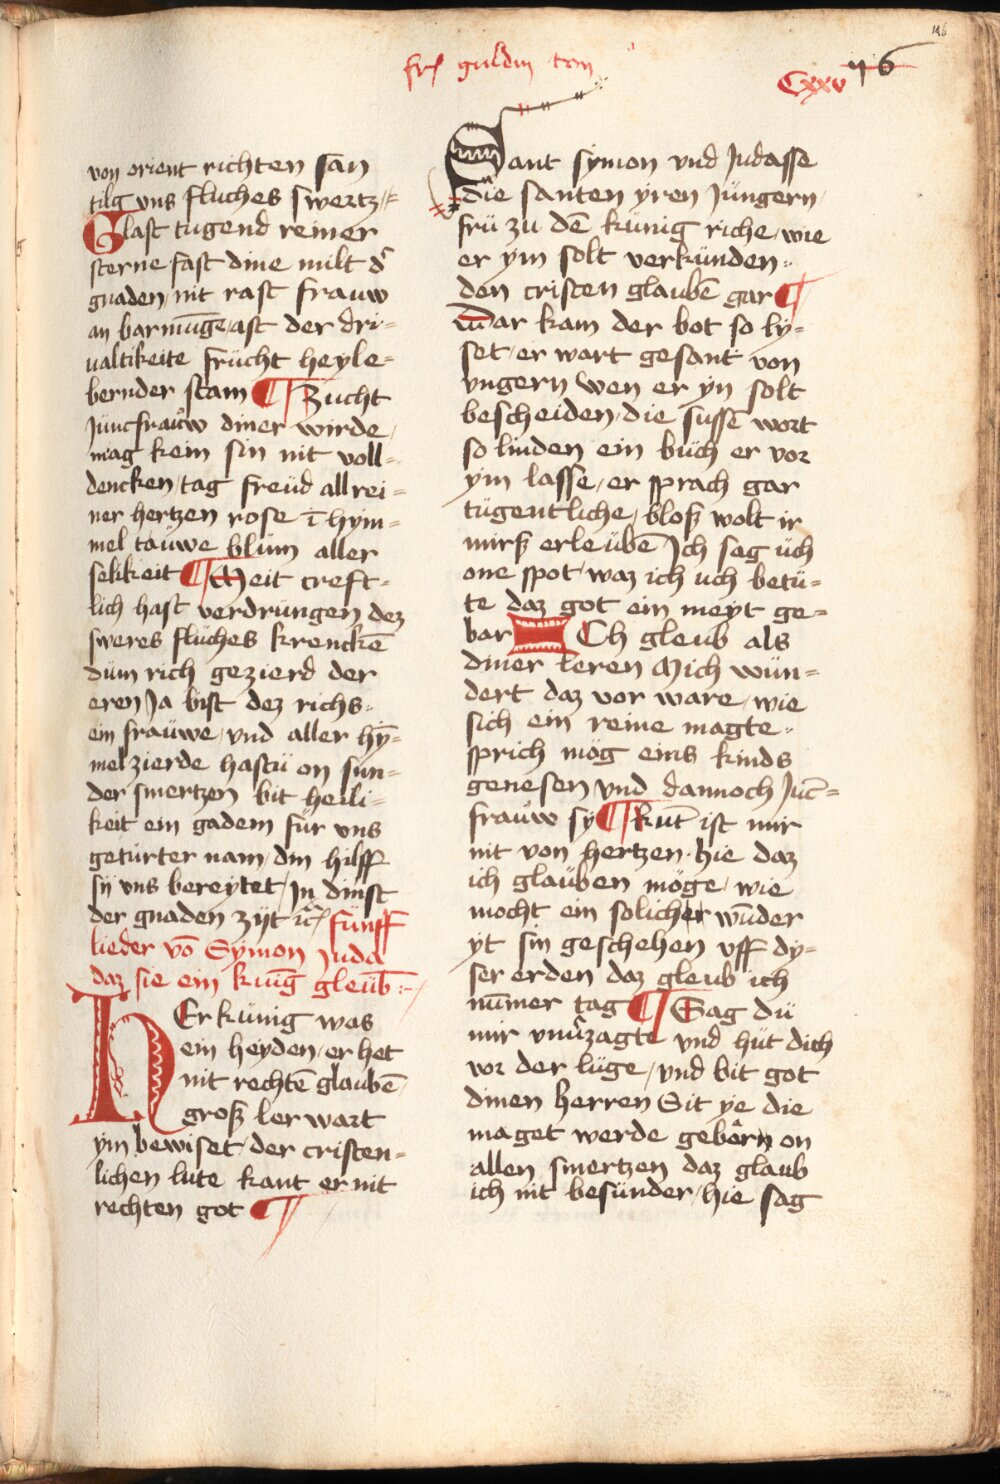 frſ guldin ton
Cxxv
116
von orient richten san
tilg vns fluches swertz
Glast tugend reiner
sterne fast dine milt d'
gnaden nit rast frauw
an barmūge ast der dri=
ualtikeite frücht heyle=
bernder stam ¶ Zucht
Jüncfrauw diner wirde
mag kein sin nit voll=
dencken tag freüd all rei=
ner hertzen rose ī hym=
mel tauwe blüm aller
selikeit ¶ Meit creft=
lich hast verdrüngen dez
sweres flüches krenckē
düm rich gezierd der
eren Ja bist dez richs=
ein fraüwe vnd aller hȳ=
mel zierde hastü on sün=
der smertzen bit heili=
keit ein gadem für vns
getürter nam din hilff
sy vns bereytet In dinst
der gnaden zijt fünff
lieder vō Symon Juda
daz sie ein küng gleübē
HEr künig was
ein heyden er het
nit rechtē glaubē
groß ler wart
ym bewiset der cristen=
lichen lute kant er nit
rechten got ¶
Sant symon vnd Judasse
die santen yren Jüngern
frü zu dē künig riche wie
er ym solt verkünden
den cristen glaubē gar ¶
dar kam der bot so ly=
set er wart gesant von
vngern wen er yn solt
bescheiden die sussē wort
so linden ein büch er vor
ym lasse er sprach gar
tügentliche bloß wolt ir
mirß erleübē Ich sag üch
one spot waz ich uch betü=
te daz got ein meyt ge=
bar ICh gleub als
diner leren Mich wün=
dert daz vor ware wie
sich ein reine magte
sprich mög eins kinds
genesen vnd dannoch Jüc=
fraüw sy ¶ kūt ist mir
nit von hertzen hie daz
ich glaüben möge wie
mocht ein solicher wūder
yt sin geschehen vff dy=
ser erden daz gleub ich
nūmer tag ¶ Sag dü
mir vnu'zagte vnd hüt dich
vor der lüge vnd bit got
dinen herren Sit ye die
maget werde gebern on
allen smertzen daz glaub
ich nit besünder hie sag